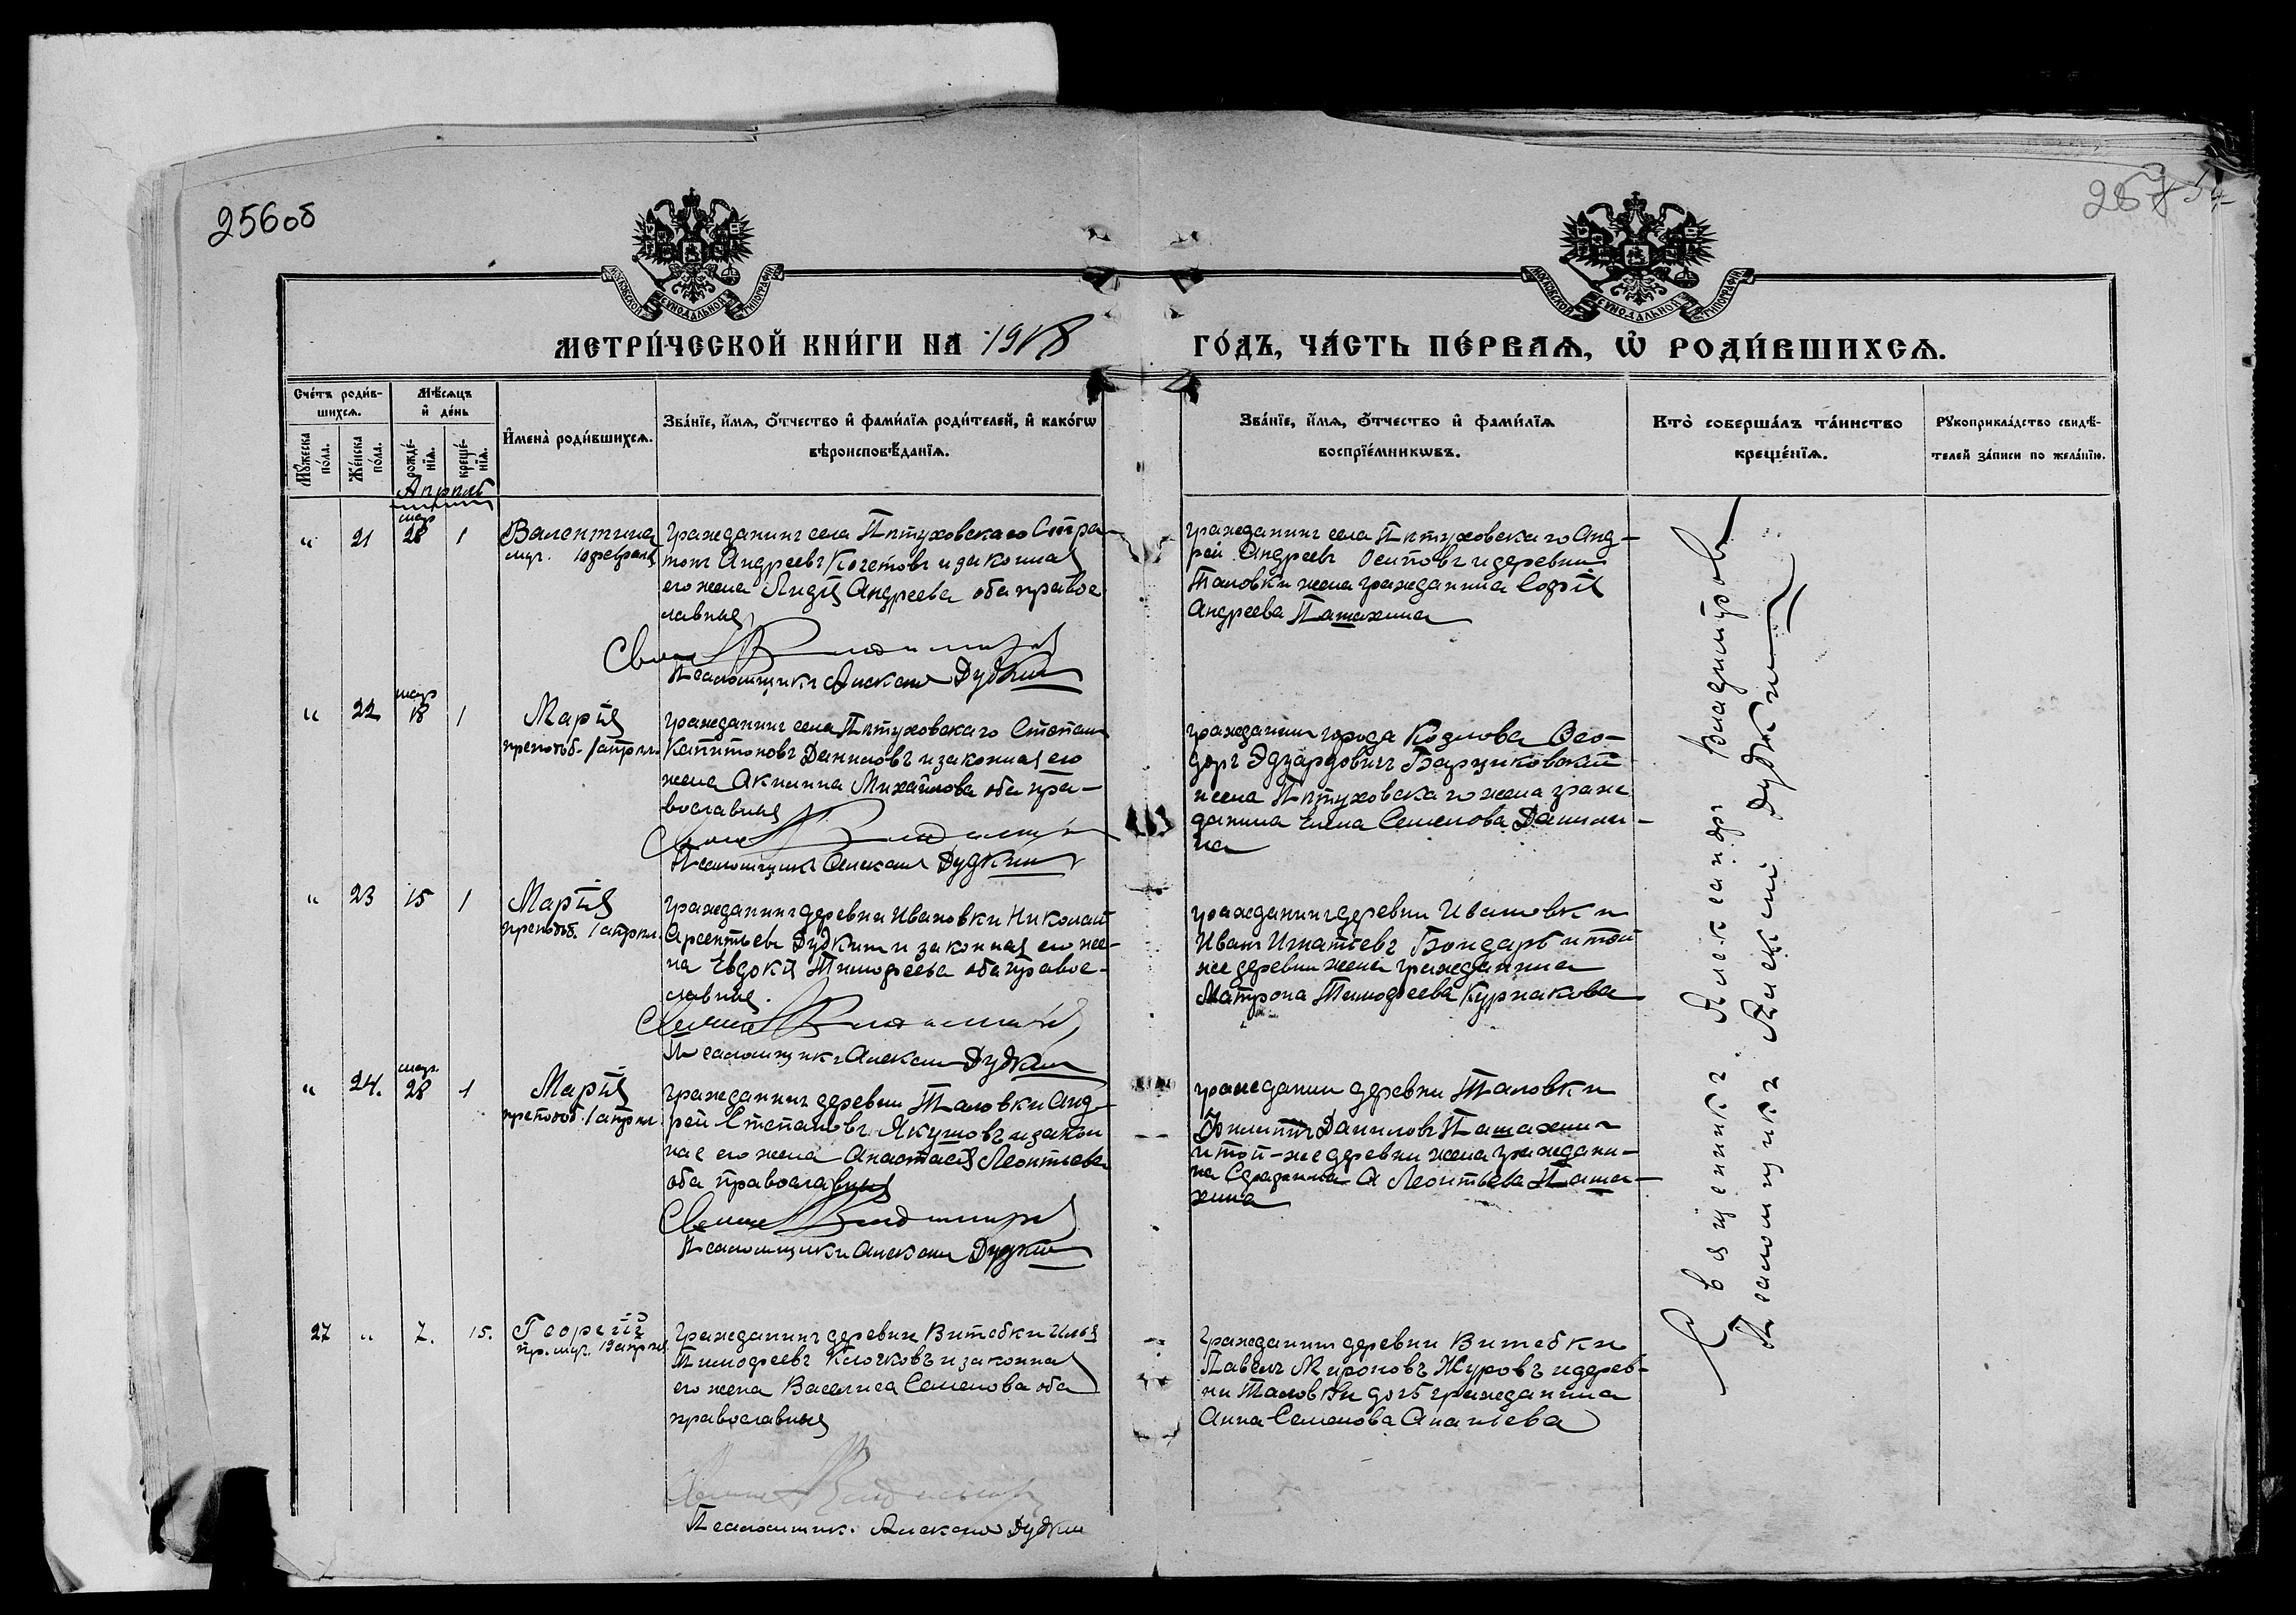 256об
257
МОСКОВСКОЙ СѴНОДАЛЬНОЙ ТИПОГРАФІИ
МОСКОВСКОЙ СѴНОДАЛЬНОЙ ТИПОГРАФІИ
МЕТРИ́ЧЕСКОЙ КНИ́ГИ НА 1918
ГО́ДЪ, ЧА́СТЬ ПЕ́РВАѦ, Ѡ҆ РОДИ́ВШИХСѦ.
Сче́тъ роди́в-
шихсѧ.
Мꙋ́жеска
по́ла.
Же́нска
по́ла.
Мѣ́сѧцъ
и҆ де́нь
рожде́-
нїѧ.
креще́-
нїѧ.
И҆мена̀ роди́вшихсѧ.
Зва́нїе, и҆́мѧ, ѻ҆́тчество и҆ фами́лїѧ роди́телей, и҆ како́гѡ
вѣроисповѣ́данїѧ.
Зва́нїе, и҆́мѧ, ѻ҆́тчество и҆ фами́лїѧ
воспрїе́мникѡвъ.
Кто̀ соверша́лъ та́инство
креще́нїѧ.
Рꙋкоприкла́дство свидѣ́-
телей за́писи по жела́нїю.
Апрѣль
" 21 мар 28 1
Валентина
муч. 10 февраля
Гражданинъ села Пѣтуховскаго Стра-
тонъ Андреевъ Кочетовъ и законная
его жена Лидія Андреева оба правос
лавные
Свящ Владимиров
Псаломщикъ Алексей Дудкин
Гражданинъ села Пѣтуховскаго Анд-
рей Андреевъ Осиповъ и деревни
Таловки жена гражданина Софія
Андреева Паташина
" 22 мар 18 1
Марія
препод. 1 апрѣл.
Гражданинъ села Пѣтуховскаго Степанъ
Капитоновъ Даниловъ и законная его
жена Акилина Михайлова оба пра-
вославные
Свящ Владимиров
Псаломщикъ Алексей Дудкин
гражданин города Козлова Фео-
доръ Эдуардовичъ Барциковский
и села Пѣтуховскаго жена граж
данина Елена Семенова Данили-
на
" 23 15 1
Марія
препод. 1 апрѣл.
Гражданинъ деревни Ивановки Николай
Арсентьевъ Дудкин и законная его же-
на Евдокія Тимофеева оба правос-
лавные.
Свящ Владимиров
Псаломщикъ Алексей Дудкин
гражданинъ деревни Ивановки
Иванъ Игнатіевъ Бондарь и той
же деревни жена гражданина
Матрона Тимофеева Курнакова
" 24. мар. 28 1
Марія
препод. 1 апрѣл.
Гражданинъ деревни Таловки Анд-
рей Степановъ Якушовъ и закон
ная его жена Анастасія Леонтьева
оба православные
Свящ Владимиров
Псаломщикъ Алексей Дудкин
гражданин деревни Таловки
Филиппъ Даниловъ Паташин
и той-же деревни жена граждани-
на Леонтьева
27 " 7. 15.
Георгій
пр. муч. 13 апрѣл
Гражданинъ деревни Витебки Илья
Тимофеевъ Клочковъ и законная
его жена Василиса Семенова оба
православные
Свящ Владимиров
Псаломщик. Алексей Дудкин
Гражданин деревни Витебки
Павелъ Мироновъ Журовъ и дерев-
ни Таловки дочь гражданина
Анна Семенова Ананьева
Священникъ Александръ Владимиров
Псаломщикъ Алексей Дудкин